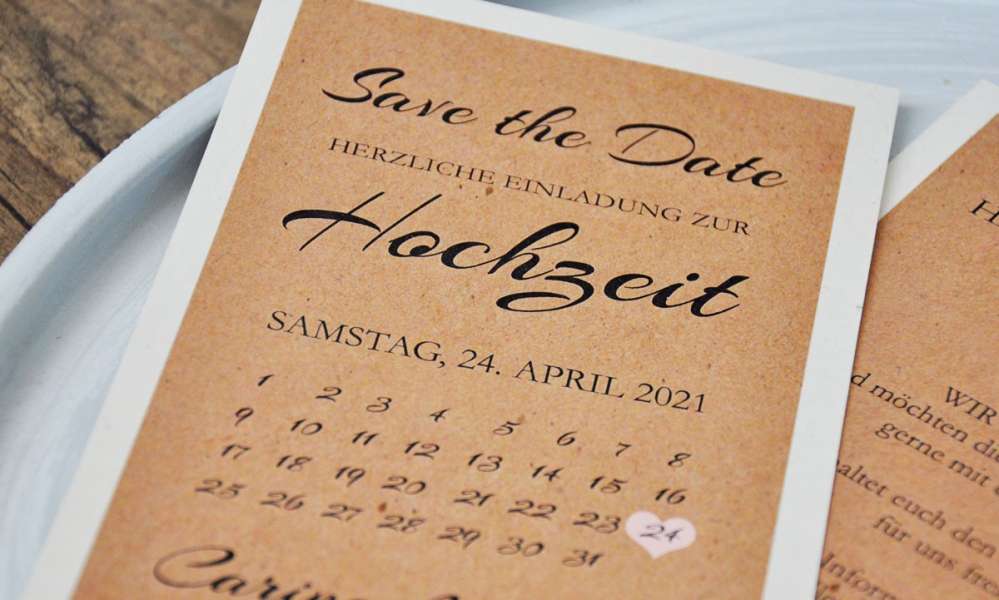 Save the Date
HERZLICHE EINLADUNG ZUR
Hochzeit
SAMSTAG, 24. APRIL 2021
1 2 3 4 5 6 7 8
9 10 11 12 13 14 15 16
17 18 19 20 21 22 23 24
25 26 27 28 29 30 31
WIR
möchten
gerne mit
euch den
für uns